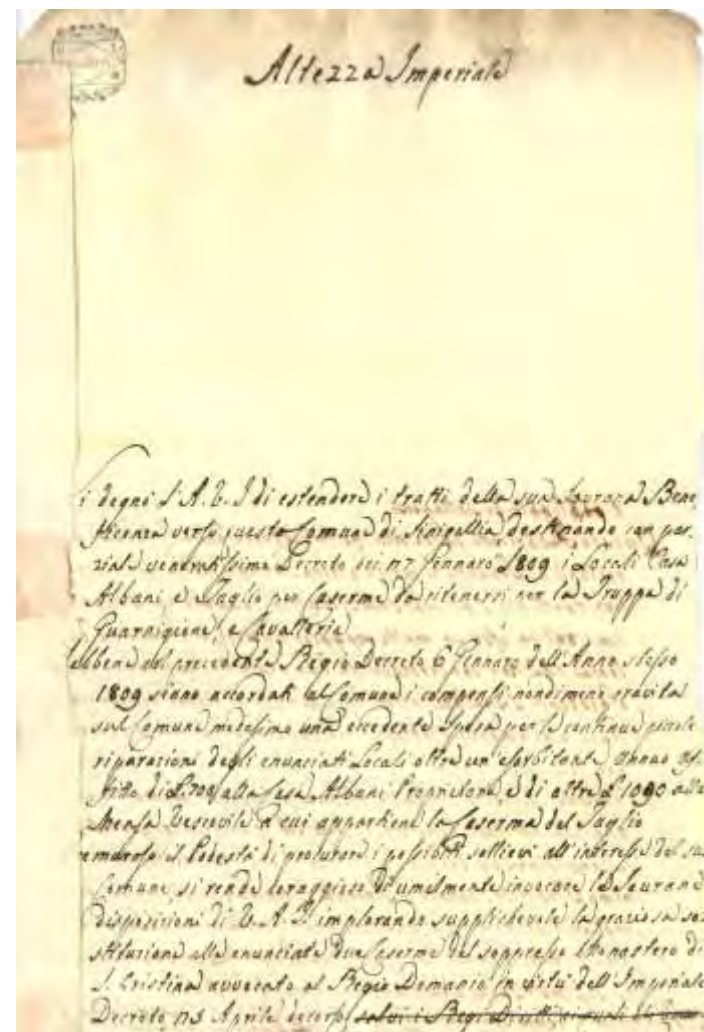 Altezza Imperiale
i degni l'A. V. I di estendere i tratti della sua Sovrana Bene
ficenza verso questo Comune di Sinigallia, destinando con par
ziale veneratissimo Decreto dei 17 Gennaro 1809 i Locali Casa
Albani, e Taglio per Caserme da ritenersi per la Truppa di
Guarnigione, e Cavalleria
ebbene col precedente Regio Decreto 6 Gennaro dell'Anno stesso
1809 siano accordati al Comune i compensi nondimeno gravita
sul Comune medesimo una eccedente spesa per le continue piccole
riparazioni degli enunciati Locali oltre un esorbitante annuo af.
fitto di £. 700 alla Casa Albani Proprietaria, e di oltre £ 1090 alla
Mensa Vescovile a cui appartiene la Caserma del Taglio
il Podestà di procurare i possibili sollievi all'interesse del suo
Comune, si rende coraggioso di umilmente invocare le Sovrane
disposizioni di V. A. I. implorando supplichevole la graziosa so
stituzione alle enunciate due Caserme del soppresso Monastero di
S. Cristina avvocato al Regio Demanio in virtù dell'Imperiale
Decreto 25 Aprile decorso salvi i Regi Diritti